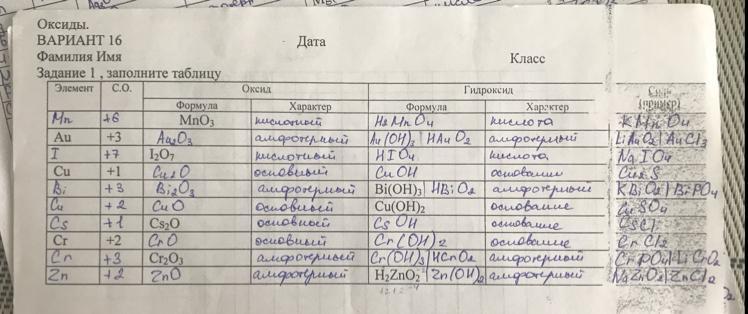 Оксиды.
ВАРИАНТ 16 Дата
Фамилия Имя Класс
Задание 1 , заполните таблицу
Элемент С.О. Оксид Гидроксид (пример)
Формула Характер Формула Характер
Mn +6 MnO₃ кислотный H₂MnO₄ кислота KMnO₄
Au +3 Au₂O₃ амфотерный Au(OH)₃ | HAuO₂ амфотерный LiAuO₂ | AuCl₃
I +7 I₂O₇ кислотный HIO₄ кислота NaIO₄
Cu +1 Cu₂O основный CuOH основание Cu₂S
Bi +3 Bi₂O₃ амфотерный Bi(OH)₃ | HBiO₂ амфотерный KBiO₂ | BiPO₄
Cu +2 CuO основный Cu(OH)₂ основание CuSO₄
Cs +1 Cs₂O основный CsOH основание CsCl
Cr +2 CrO основный Cr(OH)₂ основание CrCl₂
Cr +3 Cr₂O₃ амфотерный Cr(OH)₃ | HCrO₂ амфотерный CrPO₄ | LiCrO₂
Zn +2 ZnO амфотерный H₂ZnO₂ | Zn(OH)₂ амфотерный Na₂ZnO₂ | ZnCl₂